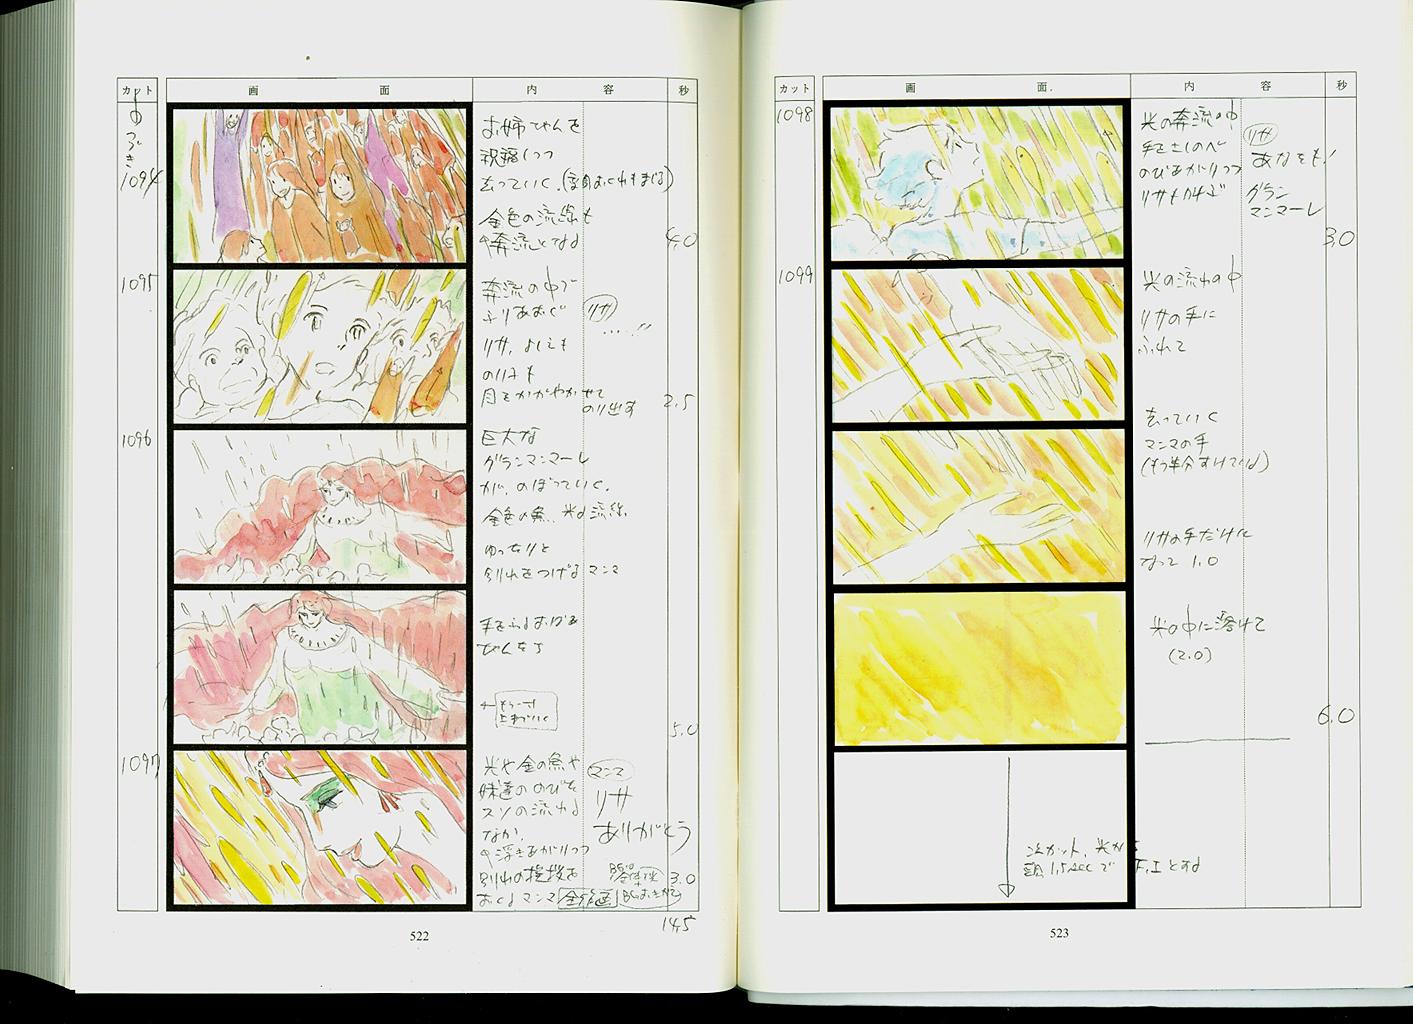 カット 画 面 内 容 秒
つづき
1094
お姉ちゃんを
祝福しつつ
去っていく。
金色の流線も
奔流となる
4.0
1095
奔流の中で
ふりあおぐ
リサ
……!!
リサ、よしえも
のり子も
目をかがやかせて
のり出す
2.5
1096
巨大な
グランマンマーレ
が、のぼっていく。
金色の魚、光の流線
ゆっくりと
別れをつげるマンマ
手をふるおばあ
ちゃんたち
もう一寸
5.0
1097
光や金の魚や
妹達ののびた
スソの流れる
なか、
浮きあがりつつ
別れの挨拶を
おくるマンマ
全作画
マンマ
リサ
ありがとう
3.0
14.5
522
カット 画 面 内 容 秒
1098
光の奔流の中
手をさしのべ
のびあがりつつ
リサも叫ぶ
リサ
あなたも!
グラン
マンマーレ
3.0
1099
光の流れの中
リサの手に
ふれて
去っていく
マンマの手
(もう半分すけている)
リサの手だけに
なって 1.0
光の中に溶けて
(2.0)
6.0
次カット、光から
頭1.5secで F.Iとする
523